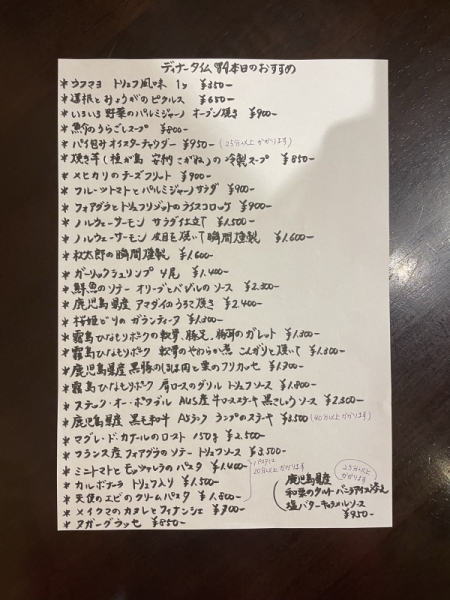 ディナータイム 本日のおすすめ
* ウフマヨ トリュフ風味 1ヶ ¥350-
* 蓮根とみょうがのピクルス ¥650-
* いろいろ野菜のパルミジャーノ オーブン焼き ¥900-
* 魚介のうらごしスープ ¥800-
* パイ包みオイスターチャウダー ¥950- (25分以上かかります)
* 焼き芋(種が島 安納こがね)の冷製スープ ¥850-
* メヒカリのチーズフリット ¥900-
* フルーツトマトとパルミジャーノサラダ ¥900-
* フォアグラとトリュフリゾットのライスコロッケ ¥900-
* ノルウェーサーモン サラダ仕立て ¥1.500-
* ノルウェーサーモン 皮目を焼いて瞬間燻製 ¥1.600-
* 紋太郎の瞬間燻製 ¥1.600-
* ガーリックシュリンプ 4尾 ¥1.400-
* 鮮魚のソテー オリーブとバジルのソース ¥2.300-
* 鹿児島県産 アマダイのうろこ焼き ¥2.400-
* 桜姫どりのガランティーヌ ¥1.300-
* 霧島ひなもりポークの軟骨、豚足、豚耳のガレット ¥1.300-
* 霧島ひなもりポーク 軟骨のやわらか煮 こんがりと焼いて ¥1.300-
* 鹿児島県産黒豚のほほ肉と栗のフリカッセ ¥1.900-
* 霧島ひなもりポーク 肩ロースのグリル トリュフソース ¥1.800-
* ステック・オー・ポワヴル AUS産牛ロースステーキ 黒こしょうソース ¥2.500-
* 鹿児島県産 黒毛和牛 A5ランク ランプのステーキ ¥3.500 (40分以上かかります)
* マグレ・ド・カナールのロースト 150g ¥2,500-
* フランス産フォアグラのソテー トリュフソース ¥3,500-
* ミニトマトとモッツァレラのパスタ ¥1,400-
* カルボナーラ トリュフ入り ¥1,500-
* 天使のエビのクリームパスタ ¥1,800-
パスタは
20分以上かかります
* メイクマのカヌレとフィナンシェ ¥700-
* ヌガーグラッセ ¥850-
25分以上
かかります
鹿児島県産
和栗のタルト バニラアイス添え
塩バターキャラメルソース
¥950-